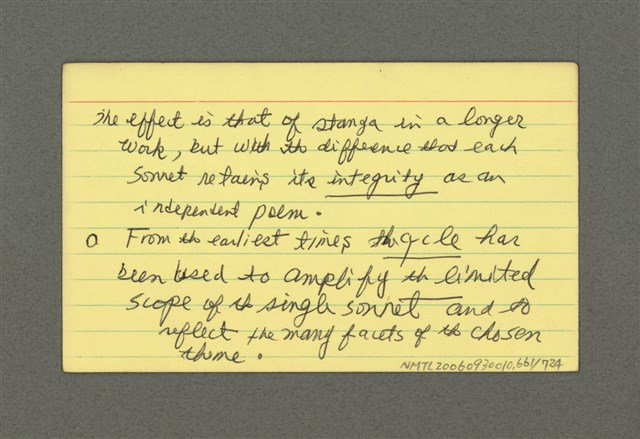 The effect is that of stanga in a longer
work, but with th difference that each
sonnet retains its integrity as an
independent poem.
o From th earliest times th cycle has
been used to amplify th limited
scope of th single sonnet and to
reflect the many facets of th chosen
theme.
NMTL20060930010,661/724